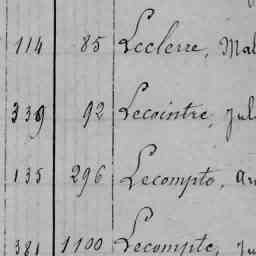 114 85 Leclerre, Mal
339 92 Lecointre, Jul
135 296 Lecompte, an
381 1100 Lecompte, Ju